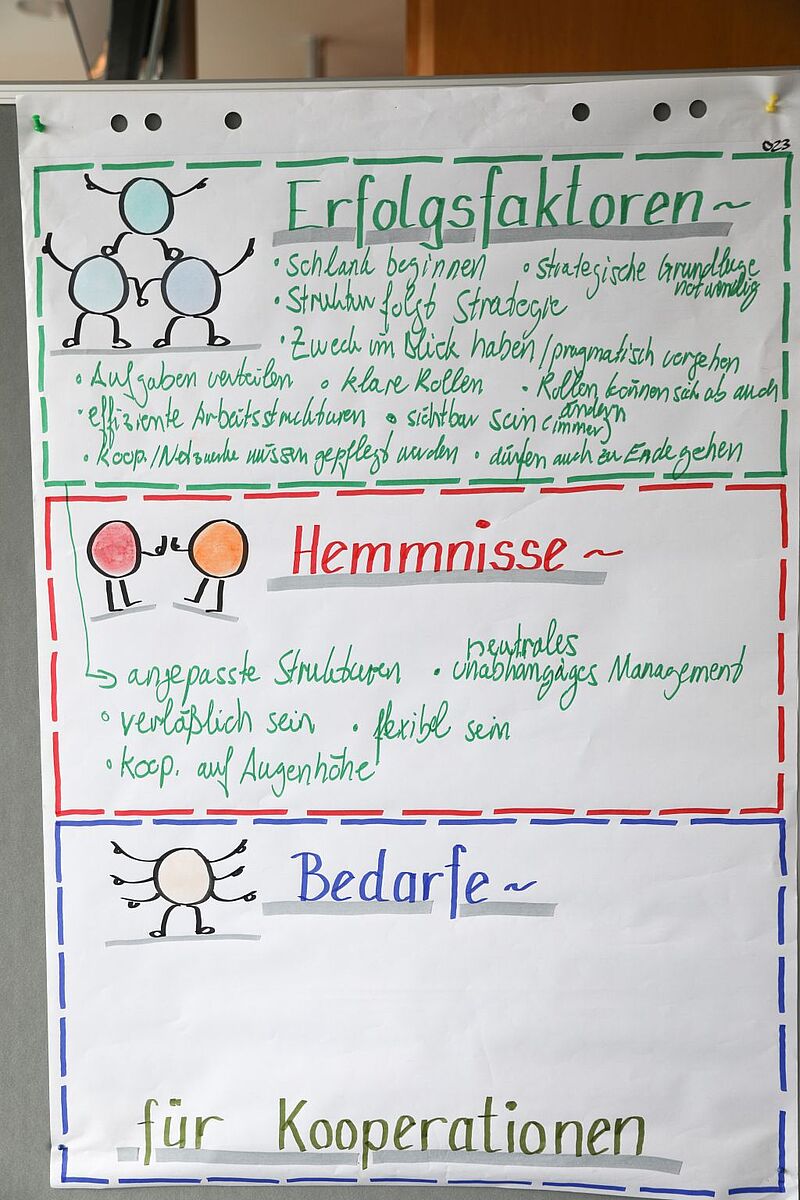 023
Erfolgsfaktoren ~
• Schlank beginnen • Strategische Grundlage notwendig
• Struktur folgt Strategie
• Zweck im Blick haben / pragmatisch vorgehen
• Aufgaben verteilen • klare Rollen • Rollen können sich ab auch ändern
• effiziente Arbeitsstrukturen • sichtbar sein (immer)
• Koop./Netzwerke müssen gepflegt werden • dürfen auch zu Ende gehen
Hemmnisse ~
→ angepasste Strukturen • neutrales unabhängiges Management
• verläßlich sein • flexibel sein
• Koop. auf Augenhöhe
Bedarfe ~
für Kooperationen